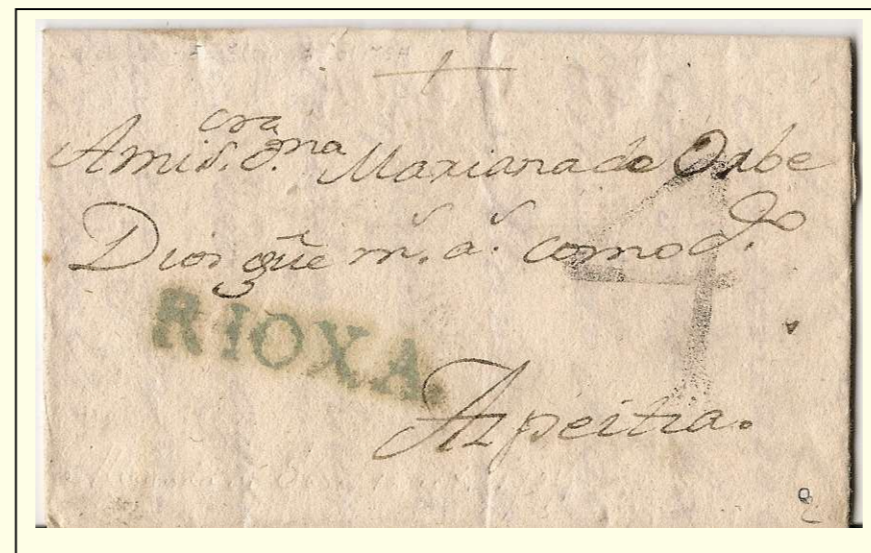 A mi S.cra D.ma Mariana de Orbe
Dios gūe m.s a.s como d.o
4
RIOXA.
Azpeitia.